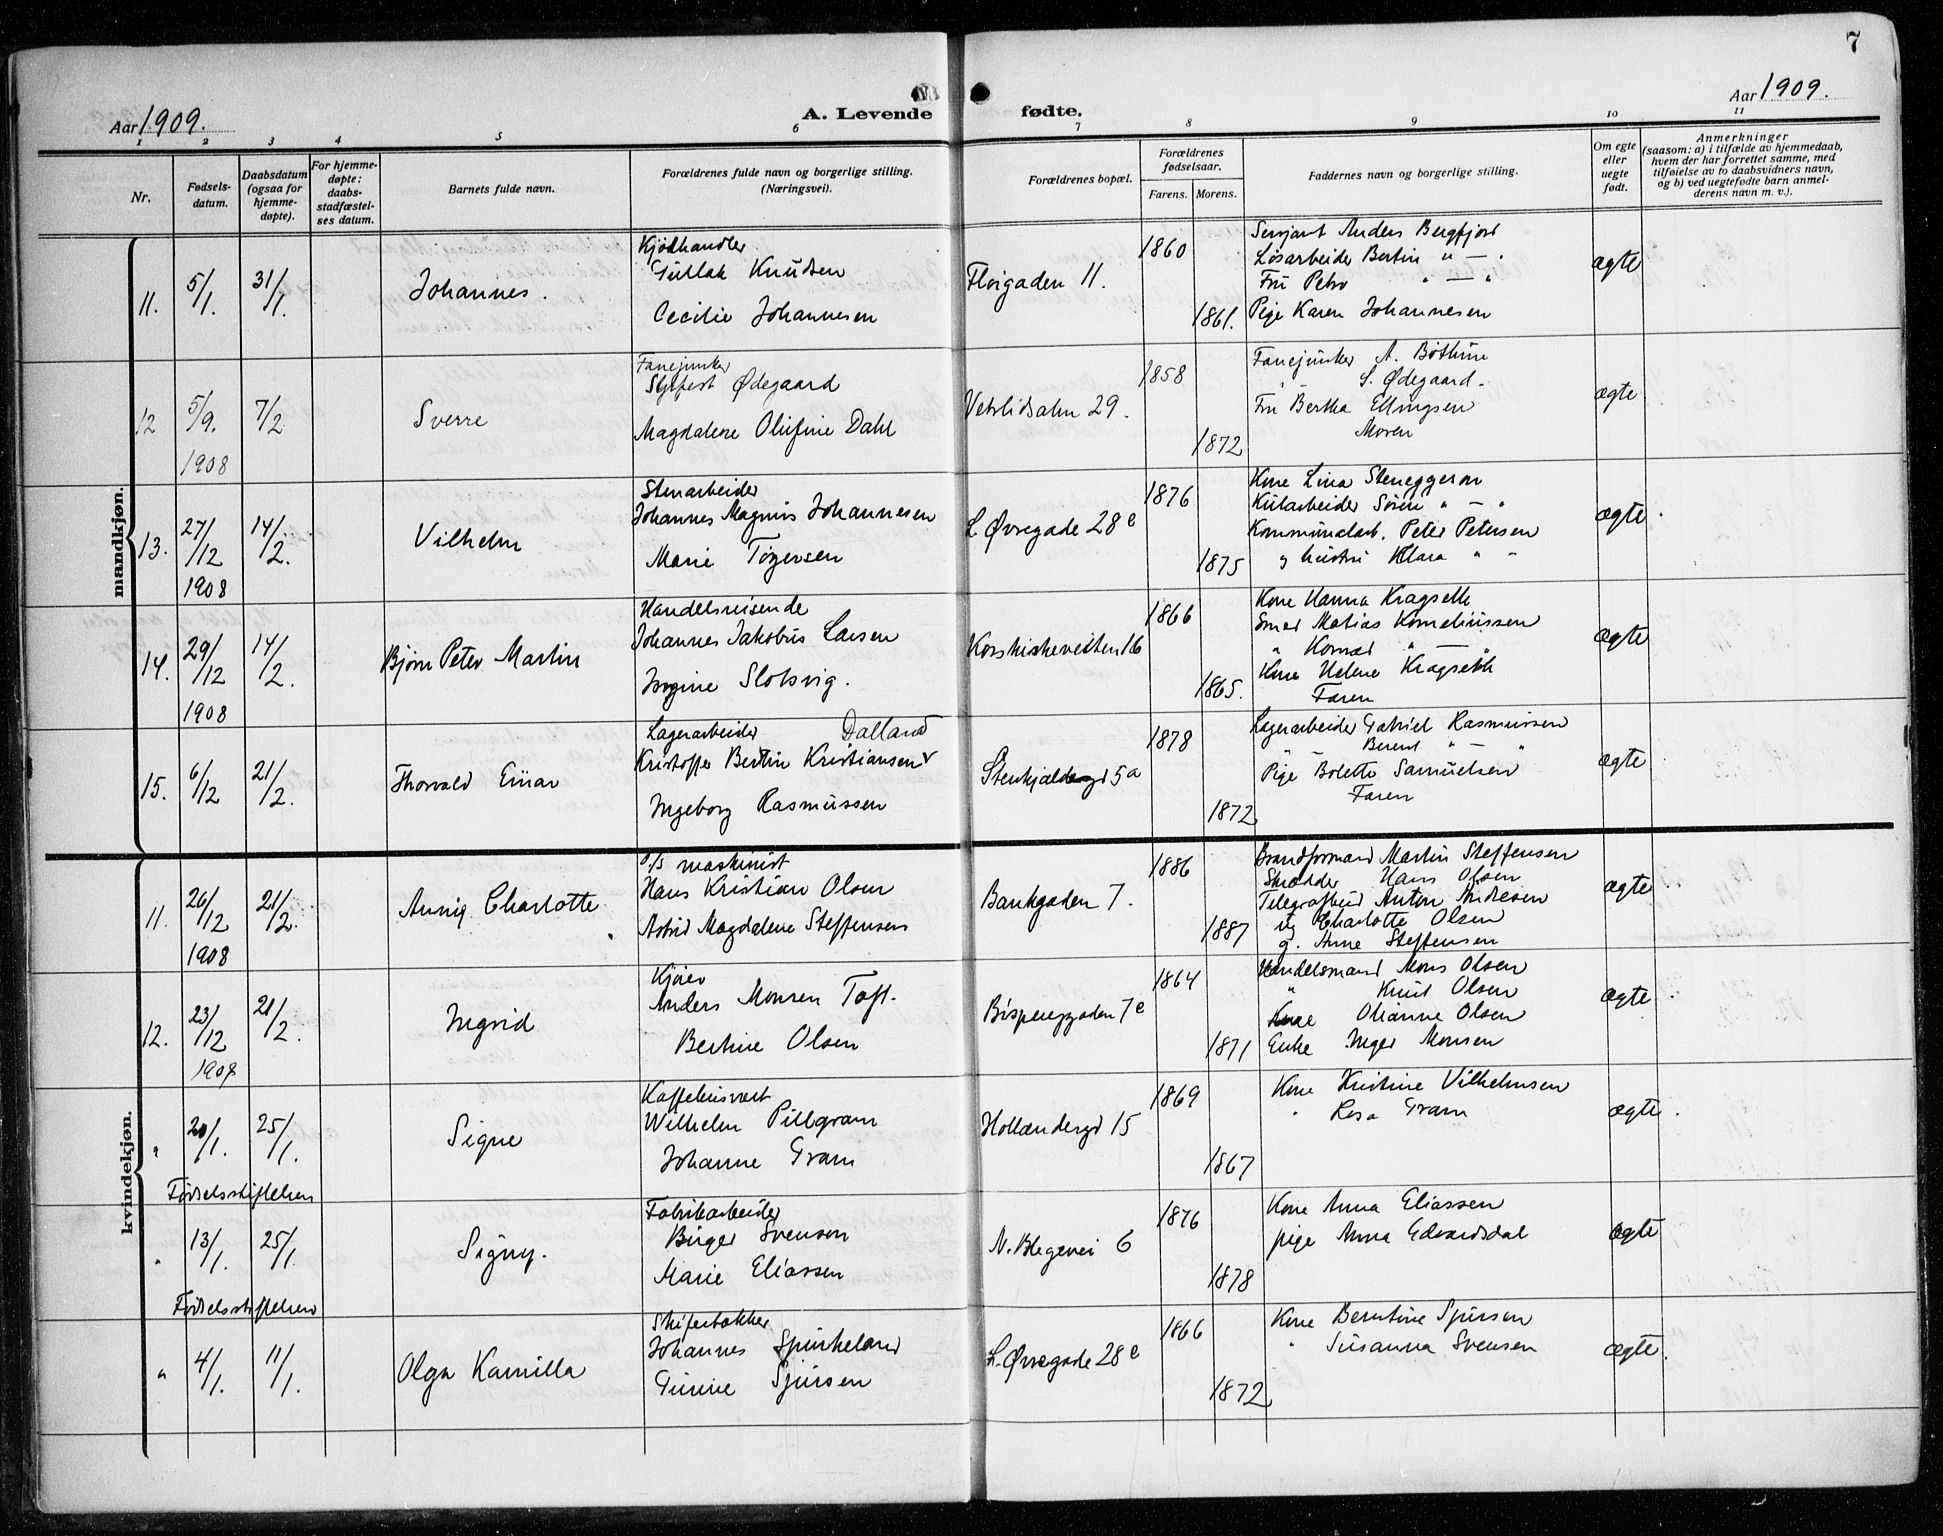 7
Aar 1909.
A. Levende fødte.
Aar 1909.
1 2 3 4 5 6 7 8 9 10 11
Nr.
Fødsels-
datum.
Daabsdatum
(ogsaa for
hjemme-
døpte).
For hjemme-
døpte:
daabs-
stadfæstel-
ses datum.
Barnets fulde navn.
Forældrenes fulde navn og borgerlige stilling.
(Næringsvei).
Forældrenes bopæl.
Forældrenes
fødselsaar.
Farens. Morens.
Faddernes navn og borgerlige stilling.
Om egte
eller
uegte
født.
Anmerkninger
(saasom: a) i tilfælde av hjemmedaab,
hvem der har forrettet samme, med
tilføielse av to daabsvidners navn,
og b) ved uegtefødte barn anmel-
derens navn m. v.).
mandkjøn.
11.
5/1.
31/1.
Johannes.
Kjødhandler
Gullak Knudsen
Cecilie Johannesen
Fløigaden 11.
1860
1861.
Serjant Anders Bergfjord
Løsarbeider Bertin " — "
Fru Petra " — "
Pige Karen Johannesen
ægte
12
5/9.
1908
7/2
Sverre
Fanejunker
Sylfest Ødegaard
Magdalene Olufine Dahl
Vetrlidsalm 29.
1858
1872
Fanejunker A. Bøthun
" S. Ødegaard.
Fru Bertha Ellingsen
Moren
ægte
13.
27/12
1908
14/2.
Vilhelm
Stenarbeider
Johannes Magnus Johannesen
Marie Tøgersen
L. Øvregade 28c
1876
1875
Kone Lina Steneggeson
Kularbeider Søren " — "
Kommunalarb. Peter Petersen
og hustru Klara " "
ægte
14.
29/12
1908
14/2.
Bjørn Peter Martin
Handelsreisende
Johannes Jakobus Larsen
Ingine Slotsvig.
Korskirkeveiten 16
1866
1865.
Kone Hanna Kragseth
Smed Matias Korneliussen
" Konrad " — "
Kone Helene Kragseth
Faren
ægte
15.
6/12
21/2.
Thorvald Einar
Lagerarbeider Dalland
Kristoffer Bertin Kristiansen
Ingeborg Rasmussen
Stenkjeldergd 5a
1878
1872
Lagerarbeider Gabriel Rasmussen
" Berent " — "
Pige Bolette Samuelsen
Faren
ægte
kvindekjøn.
11.
26/12
1908
21/2.
Annie Charlotte
d/s maskinist
Hans Kristian Olsen
Astrid Magdalene Steffensen
Bankgaden 7.
1886
1887
Brandformand Martin Steffensen
Skrædder Hans Olsen
Telegrafbud Anton Andresen
Charlotte Olsen
g. Anne Steffensen
ægte
12.
23/12
1908
21/2.
Ingrid
Kjører
Anders Monsen Toft.
Bertine Olsen
Bispenggaden 7c
1864
1871
Handelsmand Mons Olsen
" Knut Olsen
Kone Olianne Olsen
Enke Inger Monsen
ægte
"
20/1.
25/1.
Fødselsstiftelsen
Signe
Kaffehusvert
Wilhelm Pillgram
Johanne Gram
Hollendergd 15
1869
1867
Kone Kristine Vilhelmsen
" Rosa Gram
ægte
"
13/1.
25/1.
Fødselsstiftelsen
Signy.
Fabrikarbeider
Birger Svenson
Marie Eliassen
N. Blegevei 6
1876
1878
Kone Anna Eliassen
pige Anna Edvardsdal
ægte
"
4/1.
11/1.
Olga Kamilla
Skifertækker
Johannes Spurkeland
Gurine Sjursen
L. Øvregade 28c
1866
1872
Kone Berntine Sjursen
" Susanna Svensen
ægte.